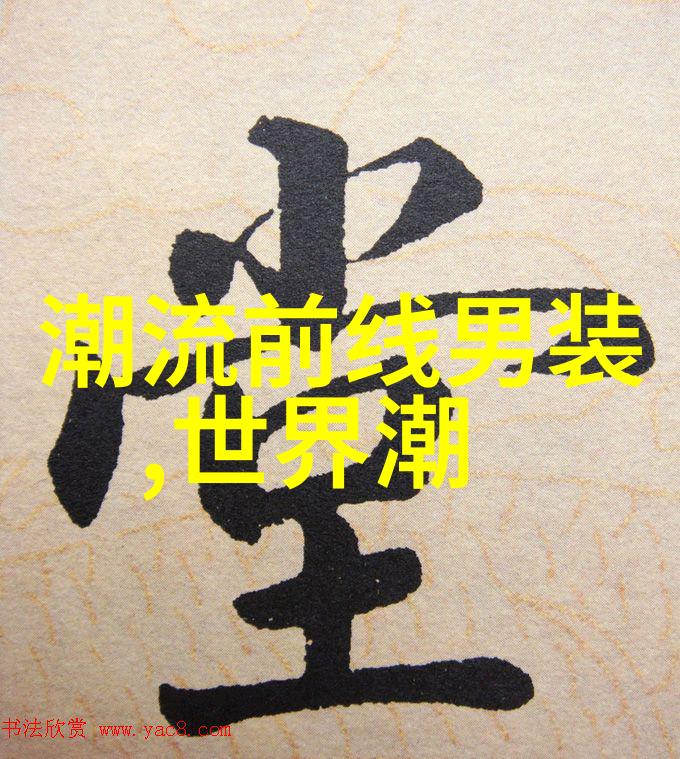 堂
潮流前线男装
,世界潮
书法欣赏 www.yac8.com